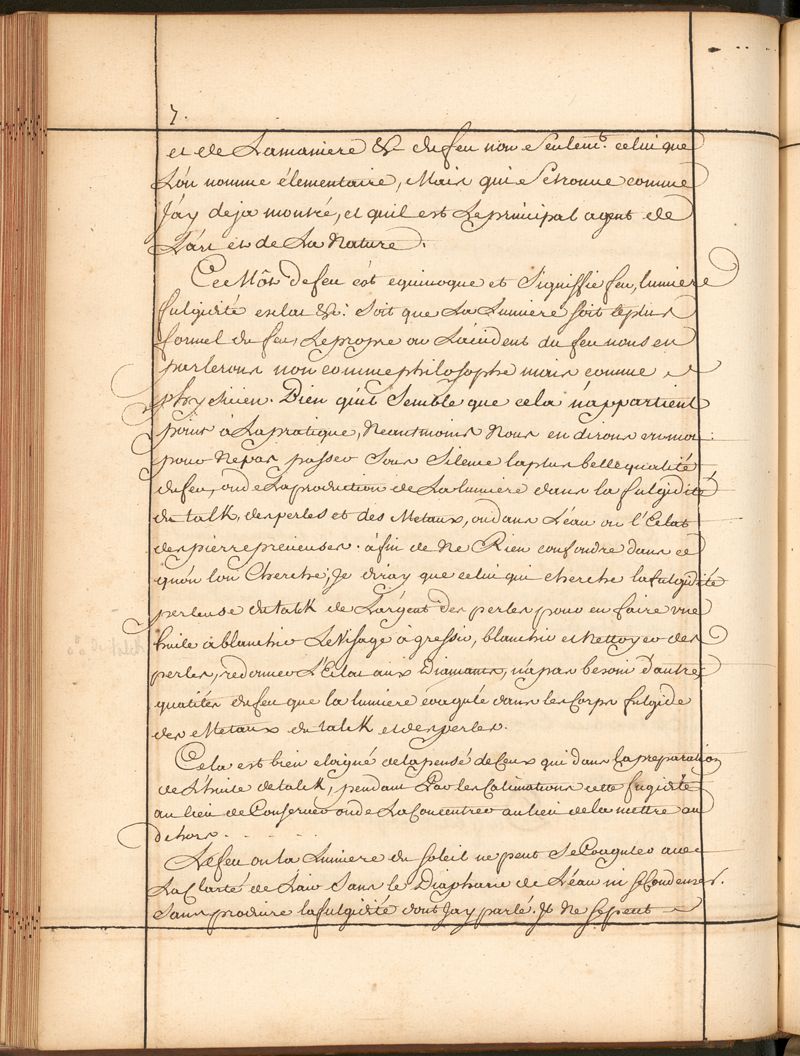 7.
et de Lamaniere &c du feu non Seulemt. celui que
L'on nomme élementaire, Mais qui Se trouue comme
J'ay deja montré, et qu'il est Le principal agent de
L'art et de La Nature.
Ce Môt de feu est equiuoque et Signiffie feu, lumiere
fulgidité esclat &c: Soit que La Lumiere soit le plus
formel du feu, Le propre ou L'accident du feu nous en
parlerons non comme philosophe mais comme
phycicien. Bien qu'il Semble que cela n'appartient
point à La pratique, Neantmoins Nous en dirons vn mot:
pour Ne pas passer Sous Silence la plus belle qualité
du feu, ou de La production de La lumiere dans la fulgidité
du talk, des perles et des Metaux, ou dans L'éau ou l'Eclat
des pierre precieuses. afin de Ne Rien confondre dans ce
qu'on l'on Cherche; Je diray que celui qui cherche la fulgidité
perleuse du talk de L'argent des perles pour en faire vne
huile à blanchir Le Visage à grossir, blanchir et Nettoyer des
perles, redonner L'Eclat aux Diamants, n'a pas besoin d'autres
qualités du feu que la lumiere coagulé dans les Corps fulgide
des Metaux du talk et des perles.
Cela est bien eloigné de la pensé de Ceux qui dans la preparation
de L'huile de talk, pendant Par les Calcinations cette fulgidité
au lieu de Conseruer ou de La Concentrer au lieu de la mettre au
dehors.
Le feu ou la Lumiere du Soleil ne peut Se Coaguler auec
La Clarté de L'air Sans le Diaphane de L'éau ni se Condenser.
Sans produire la fulgidité dont J'ay parlé. Il Ne se peut